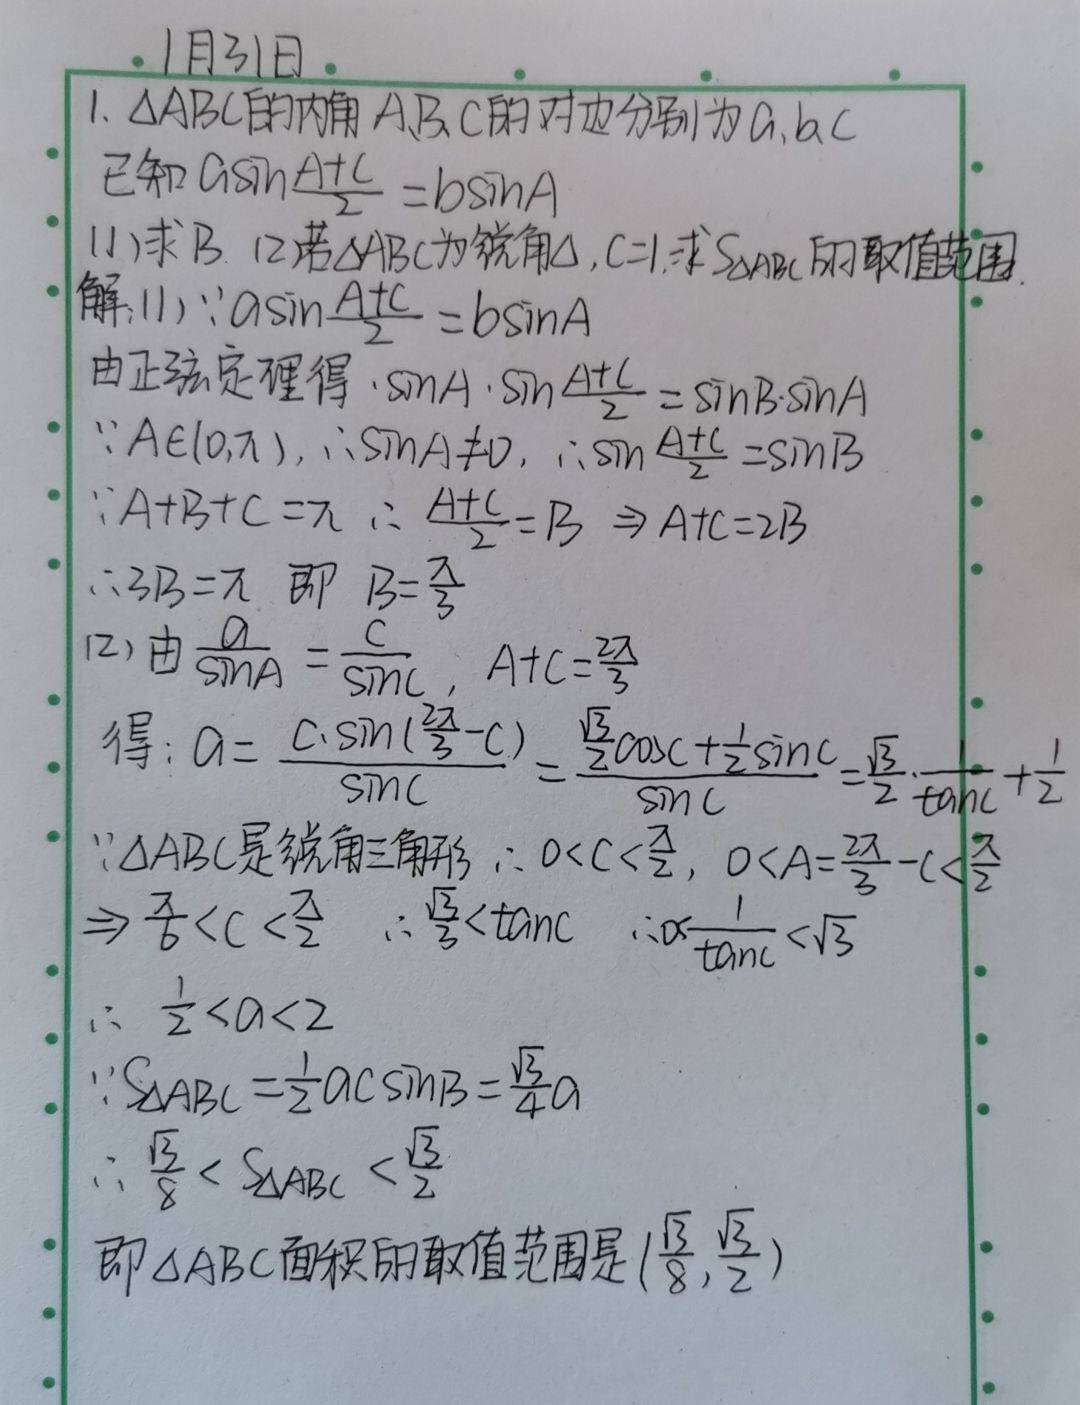 1月31日
1. △ABC的内角 A、B、C的对边分别为a、b、c
已知 asin\frac{A+C}{2} = bsinA
(1)求B. (2)若△ABC为锐角△, c=1, 求S△ABC的取值范围.
解:(1) ∵asin\frac{A+C}{2} = bsinA
由正弦定理得·sinA·sin\frac{A+C}{2} = sinB·sinA
∵A∈(0,π), ∴sinA≠0, ∴sin\frac{A+C}{2} = sinB
∵A+B+C=π ∴ \frac{A+C}{2} = B ⇒ A+C=2B
∴3B=π 即 B=\frac{π}{3}
(2) 由 \frac{a}{sinA} = \frac{c}{sinC}, A+C=\frac{2π}{3}
得: a = \frac{c·sin(\frac{2π}{3}-C)}{sinC} = \frac{\frac{√3}{2}cosC+\frac{1}{2}sinC}{sinC} = \frac{√3}{2}·\frac{1}{tanC}+\frac{1}{2}
∵△ABC是锐角三角形 ∴ 0<C<\frac{π}{2}, 0<A=\frac{2π}{3}-C<\frac{π}{2}
⇒ \frac{π}{6}<C<\frac{π}{2} ∴\frac{√3}{3}<tanC ∴0<\frac{1}{tanC}<√3
∴ \frac{1}{2}<a<2
∵S△ABC = \frac{1}{2}acsinB = \frac{√3}{4}a
∴ \frac{√3}{8} < S△ABC < \frac{√3}{2}
即△ABC面积的取值范围是(\frac{√3}{8}, \frac{√3}{2})